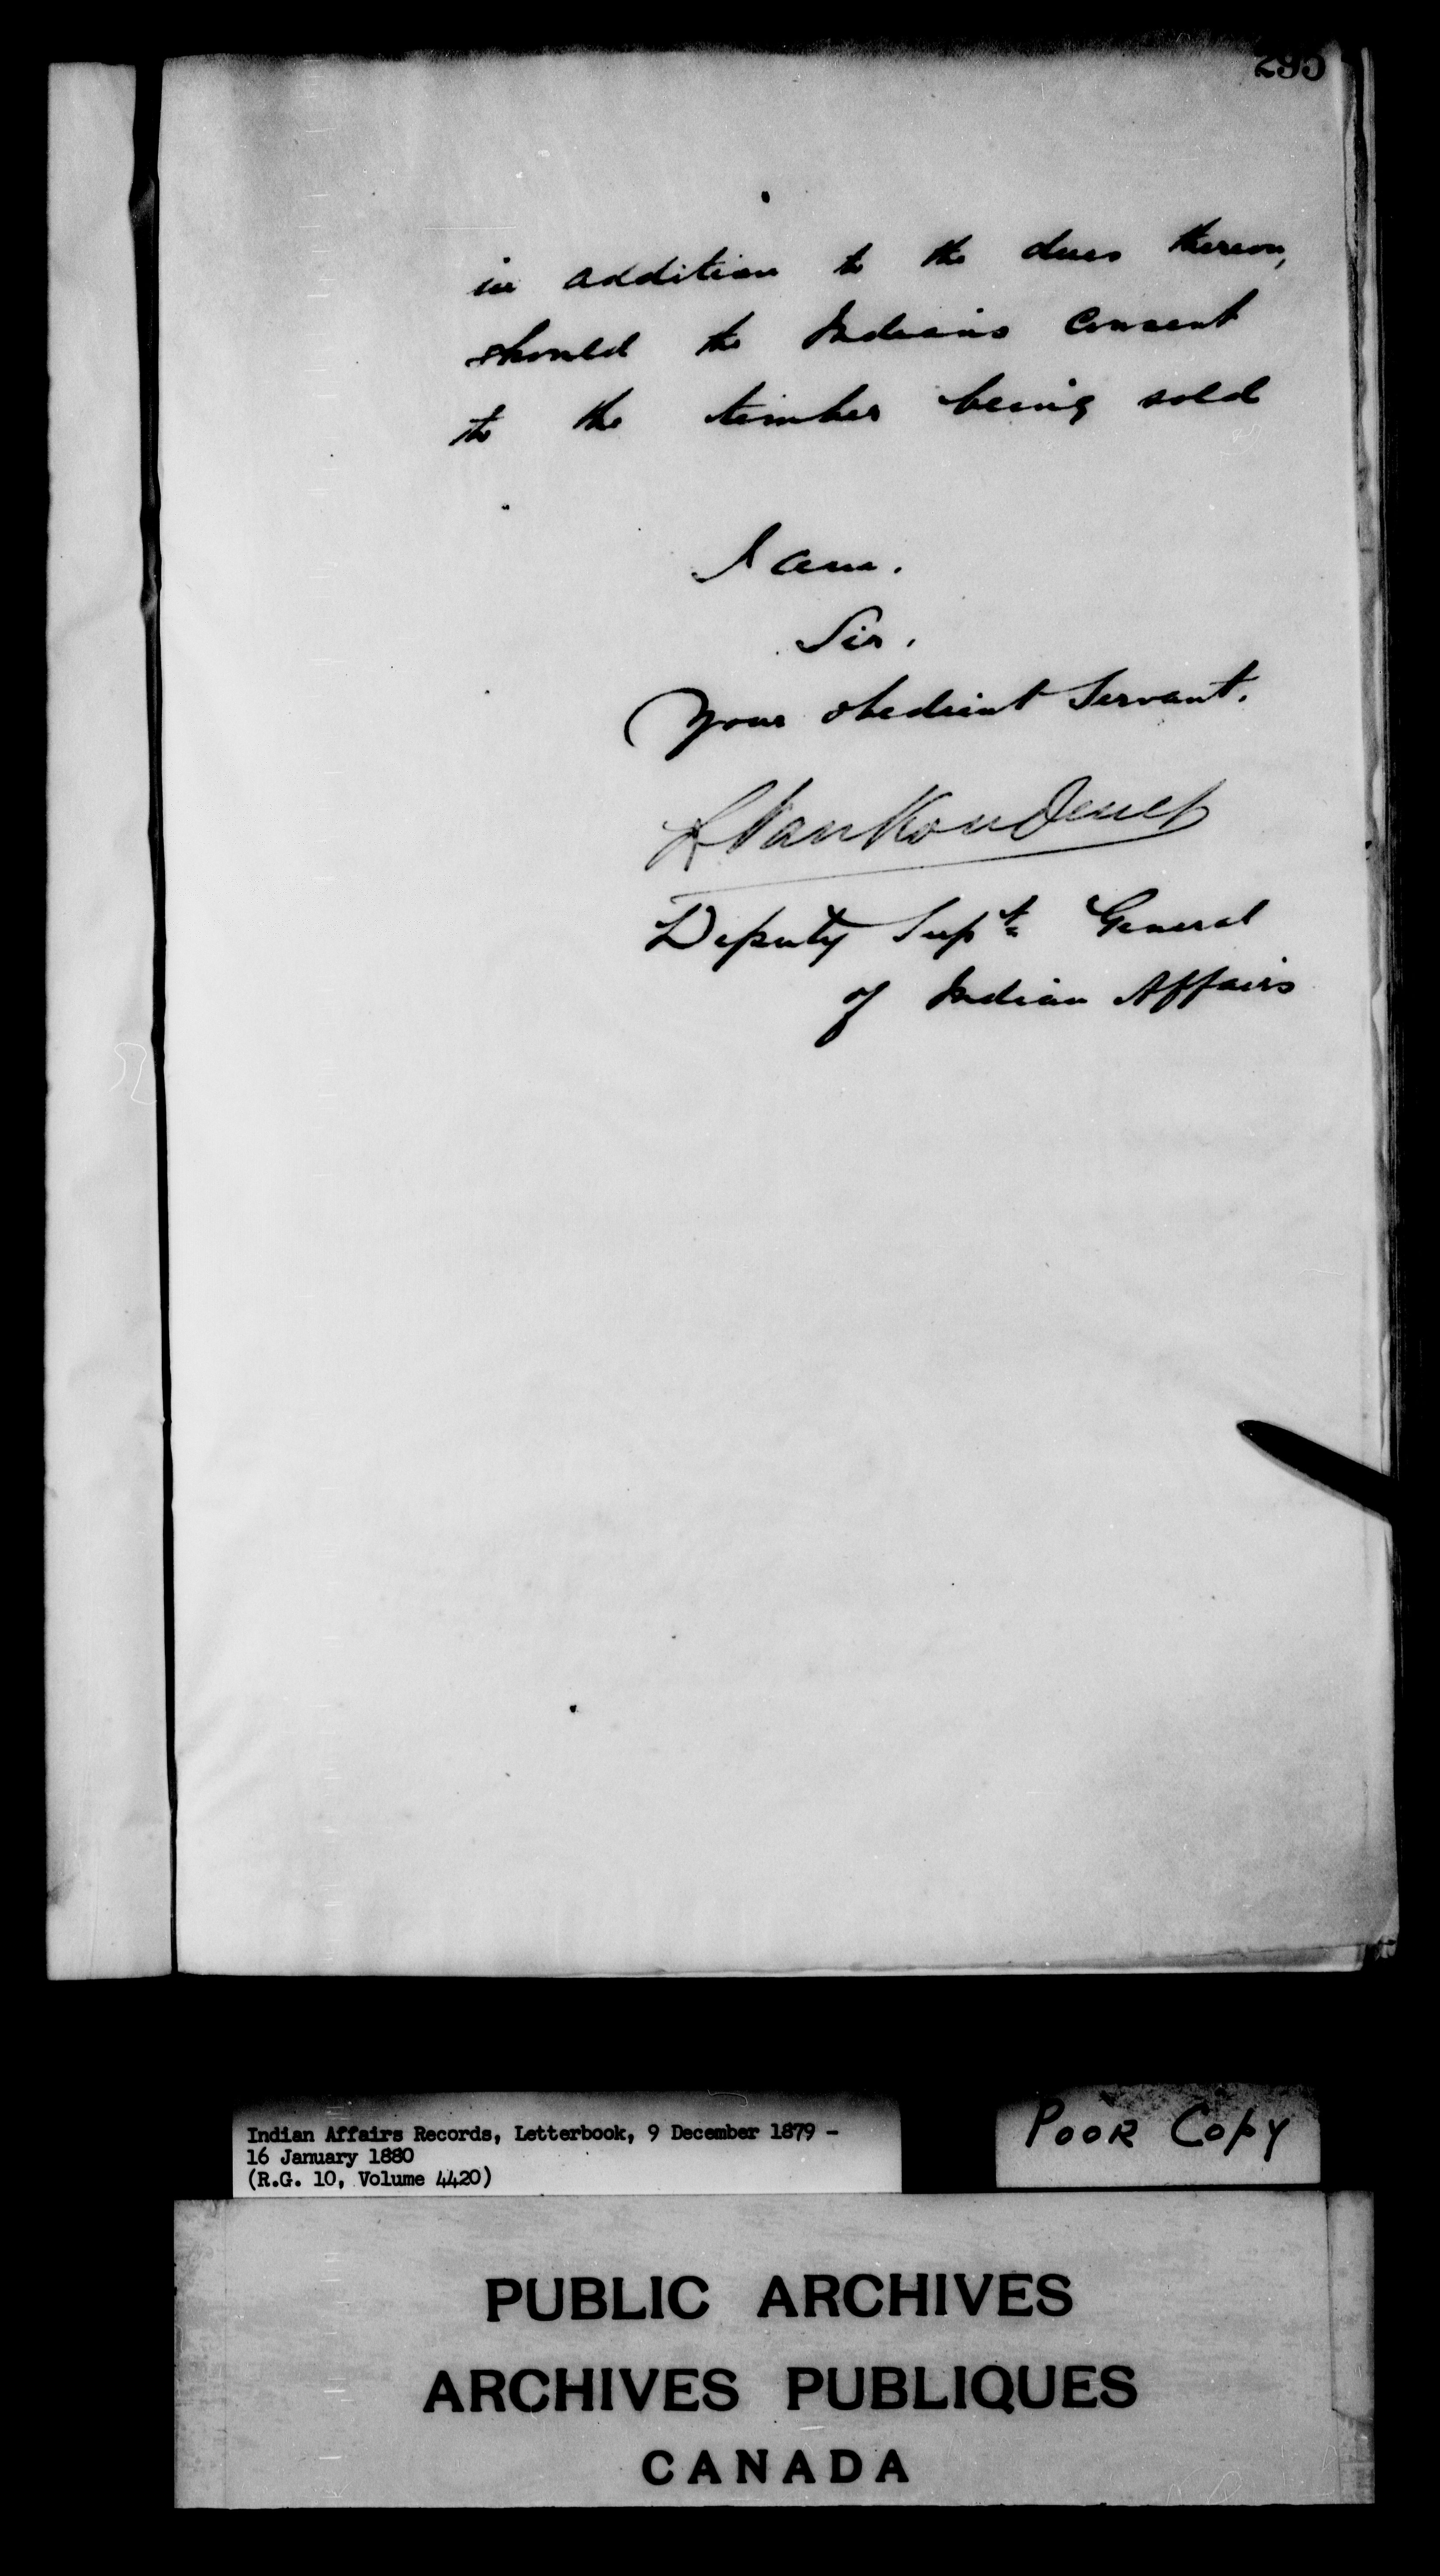 295
in addition to the dues thereon,
should the Indians consent
to the timber being sold
I am.
Sir.
Your obedient Servant.
L VanKoughnet
Deputy Supt General
of Indian Affairs
Indian Affairs Records, Letterbook, 9 December 1879 -
16 January 1880
(R.G. 10, Volume 4420)
POOR COPY
PUBLIC ARCHIVES
ARCHIVES PUBLIQUES
CANADA